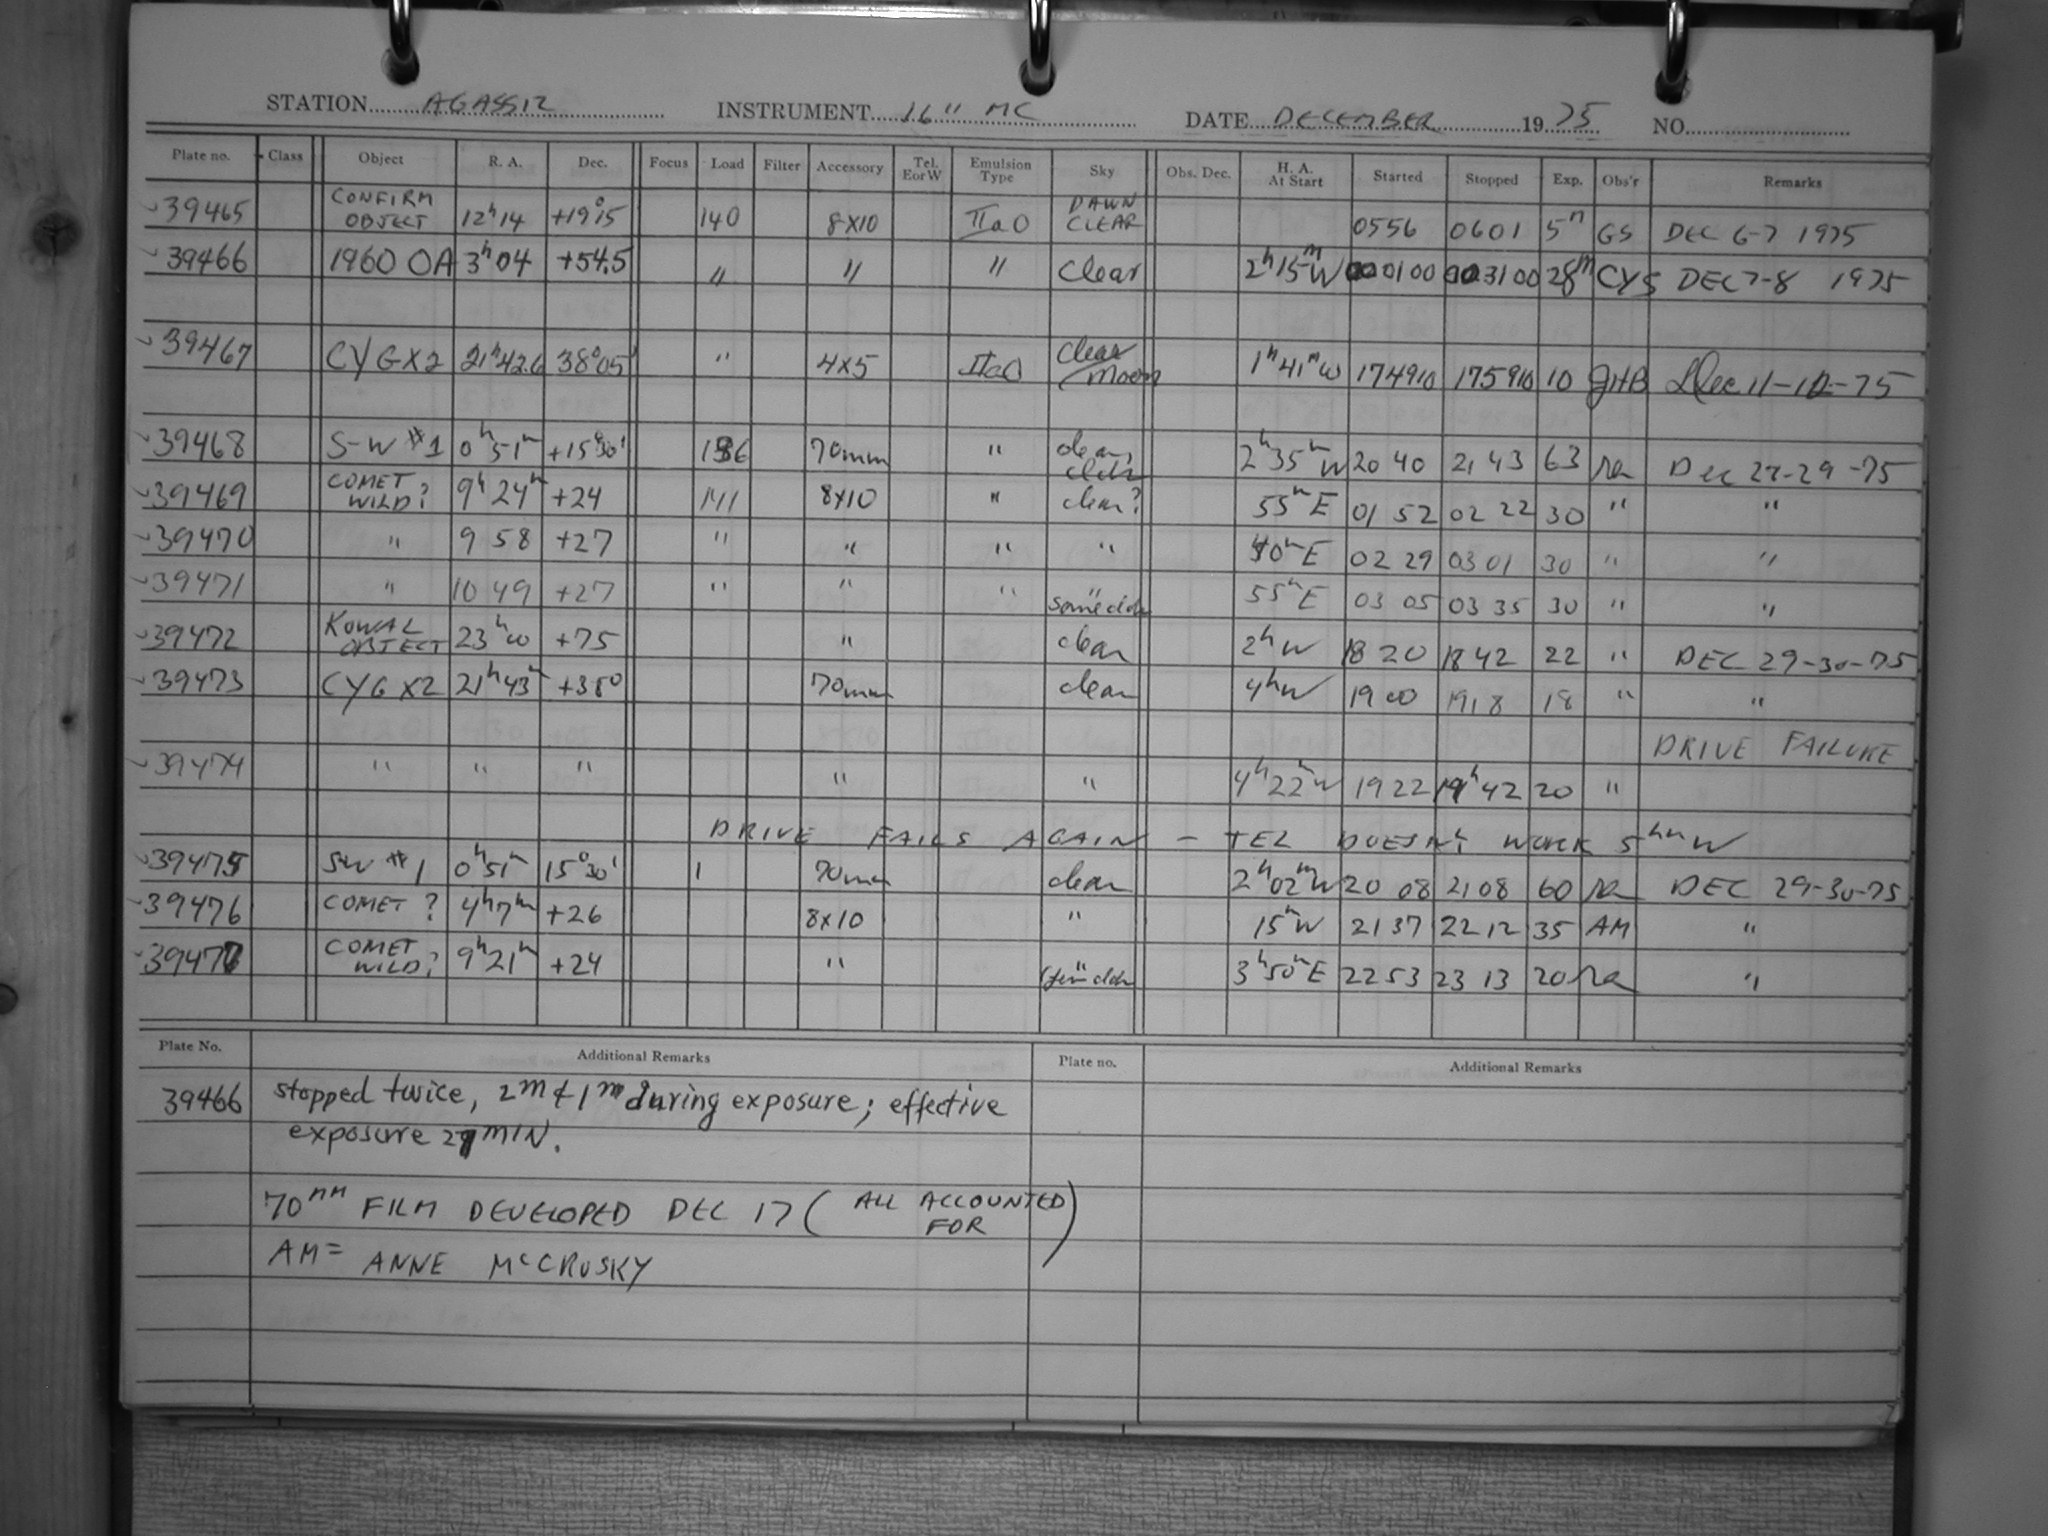 STATION AGASSIZ INSTRUMENT 16" MC DATE DECEMBER 1975 NO.
Plate no. Class Object R. A. Dec. Focus Load Filter Accessory Tel. E or W Emulsion Type Sky Obs. Dec. H. A. At Start Started Stopped Exp. Obs'r Remarks
39465 CONFIRM OBJECT 12h14 +19°15 140 8X10 IIaO DAWN CLEAR 0556 0601 5m GS DEC 6-7 1975
39466 1960 OA 3h04 +54.5 " " " Clear 2h15mW 000100 003100 28m CYS DEC 7-8 1975
39467 CYGX2 21h42.6 38°05' " 4X5 IIaO Clear/Moon 1h41mW 174910 175910 10 JHB Dec 11-12-75
39468 S-W #1 0h51m +15°30' 136 70mm " clear, 2h35mW 20 40 21 43 63 Dec 28-29-75
39469 COMET WILD? 9h24m +24 141 8X10 " clear? 55mE 01 52 02 22 30 " "
39470 " 9 58 +27 " " " " 40mE 02 29 03 01 30 " "
39471 " 10 49 +27 " " " " some clds 55mE 03 05 03 35 30 " "
39472 KOWAL OBJECT 23h00 +75 " clear 2hW 18 20 18 42 22 " DEC 29-30-75
39473 CYG X2 21h43m +38° 70mm clear 4hW 19 00 19 18 18 " "
DRIVE FAILURE
39474 " " " " " 4h22mW 19 22 19h42 20 "
DRIVE FAILS AGAIN - TEL DOESN'T WORK 5hrW
39475 SW #1 0h51m 15°30' 1 70mm clear 2h02mW 20 08 21 08 60 DEC 29-30-75
39476 COMET ? 4h7m +26 8X10 " 15mW 21 37 22 12 35 AM "
39477 COMET WILD? 9h21m +24 " " 3h50mE 22 53 23 13 20 "
Plate No. Additional Remarks Plate no. Additional Remarks
39466 stopped twice, 2m & 1m during exposure; effective
exposure 27 MIN.
70mm FILM DEVELOPED DEC 17 (ALL ACCOUNTED FOR)
AM = ANNE McCROSKY